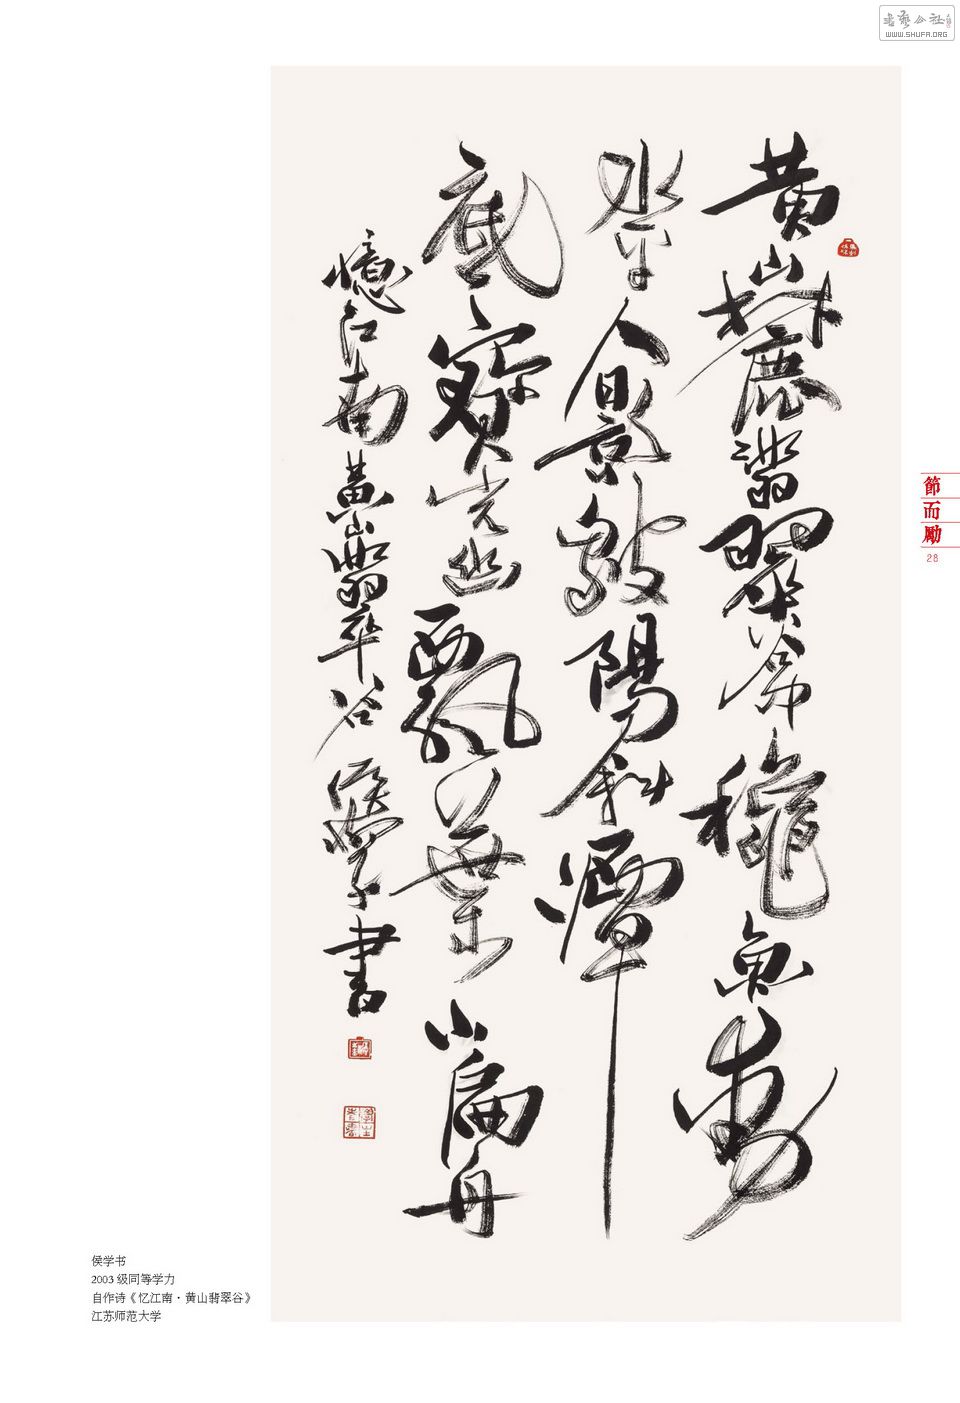 書藝公社
WWW.SHUFA.ORG
黄山麓翡翠龝魚
人影陽斜潭
底寶光幽飄葉小扁舟
憶江南黄山翡翠谷侯學書
節而勵
28
侯学书
2003 级同等学力
自作诗《忆江南·黄山翡翠谷》
江苏师范大学